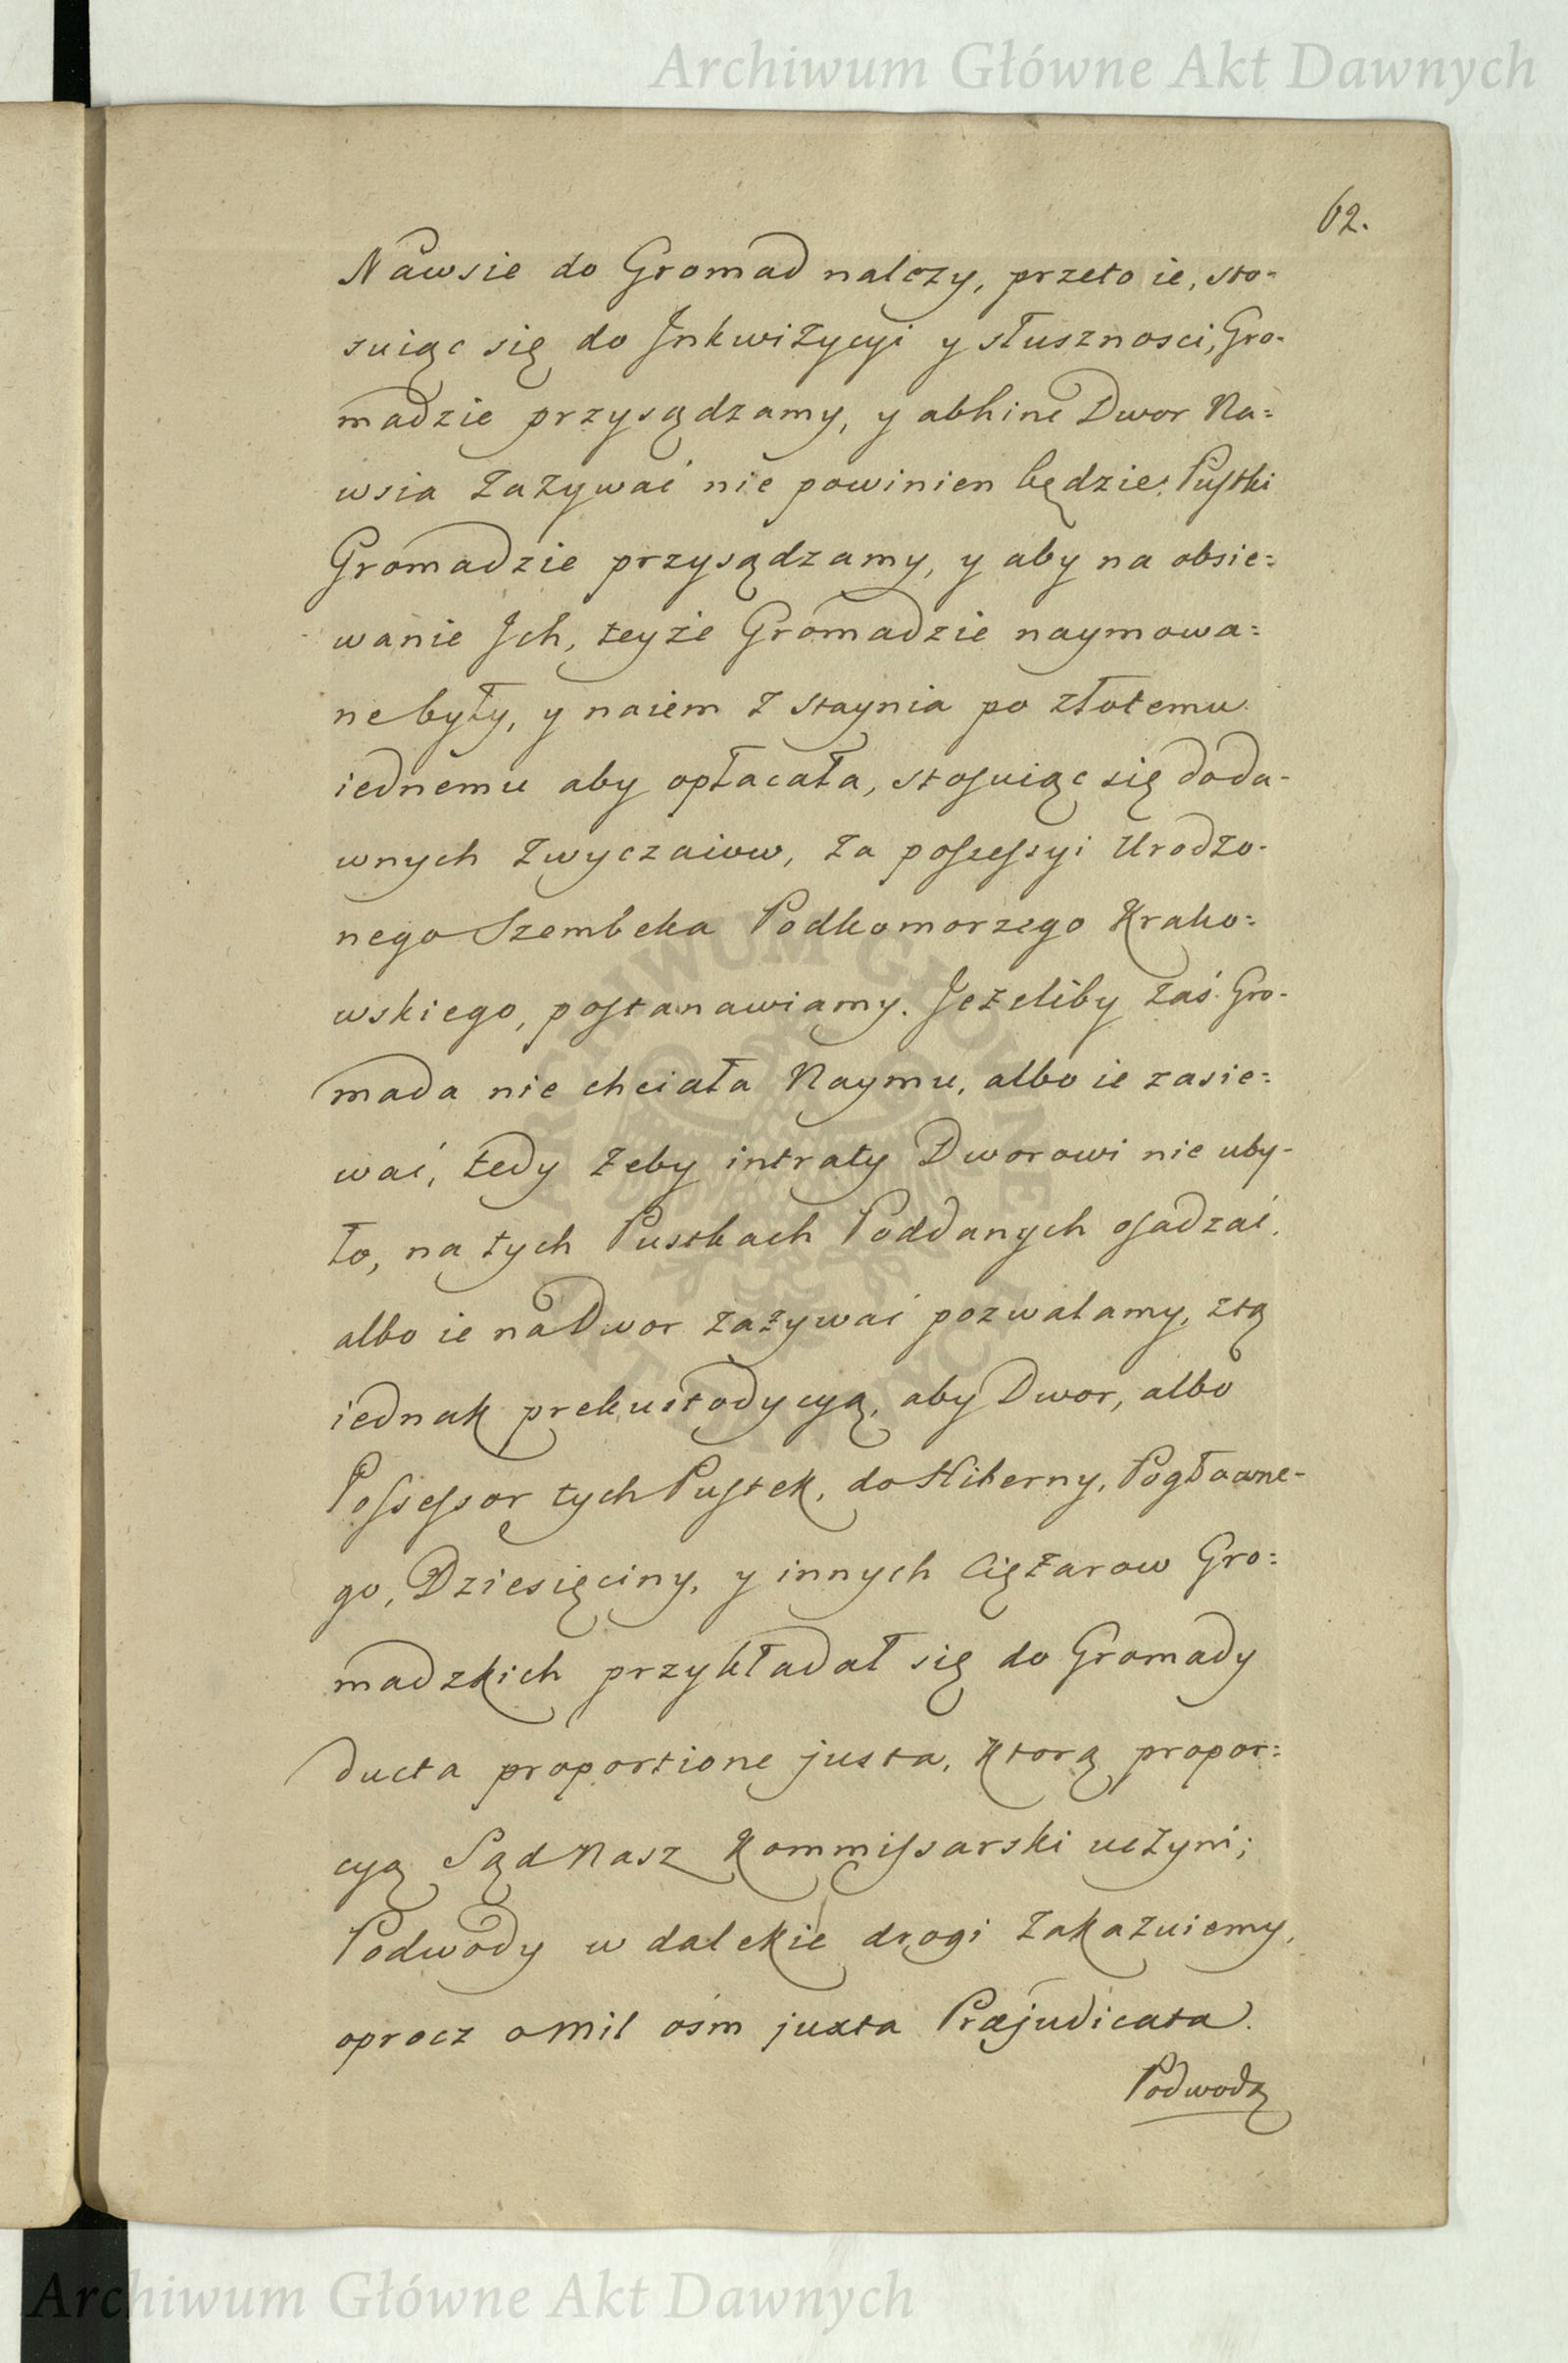 Archiwum Główne Akt Dawnych
62.
Nawsie do Gromad nalezy, przeto ie, sto-
suiąc się do Jnkwizycyi y słusznosci, Gro-
madzie przysądzamy, y abhinc Dwor Na=
wsia zazywać nie powinien będzie; Pustki
Gromadzie przysądzamy, y aby na obsie=
wanie Jch, teyże Gromadzie naymowa=
ne były, y naiem z staynia po złotemu
iednemu aby opłacała, stosuiąc się do da-
wnych zwyczaiow, za possessyi Urodzo-
nego Szembeka Podkomorzego Krako=
wskiego, postanawiamy. Jezeliby zaś Gro-
mada nie chciała Naymu, albo ie zasie=
wać, tedy zeby intraty Dworowi nie uby-
ło, na tych Pustkach Poddanych osadzać,
albo ie na Dwor zażywać pozwalamy, z tą
iednak prekustodycyą, aby Dwor, albo
Possessor tych Pustek, do Hiberny, Pogłowne-
go, Dziesięciny, y innych Cięzarow Gro=
madzkich przykładał się do Gromady
ducta proportione justa, ktorą propor=
cyą Sąd Nasz Kommissarski uczyni;
Podwody w dalekie drogi zakazuiemy,
oprocz o Mil ośm juxta Præjudicata.
Podwodą
Archiwum Główne Akt Dawnych